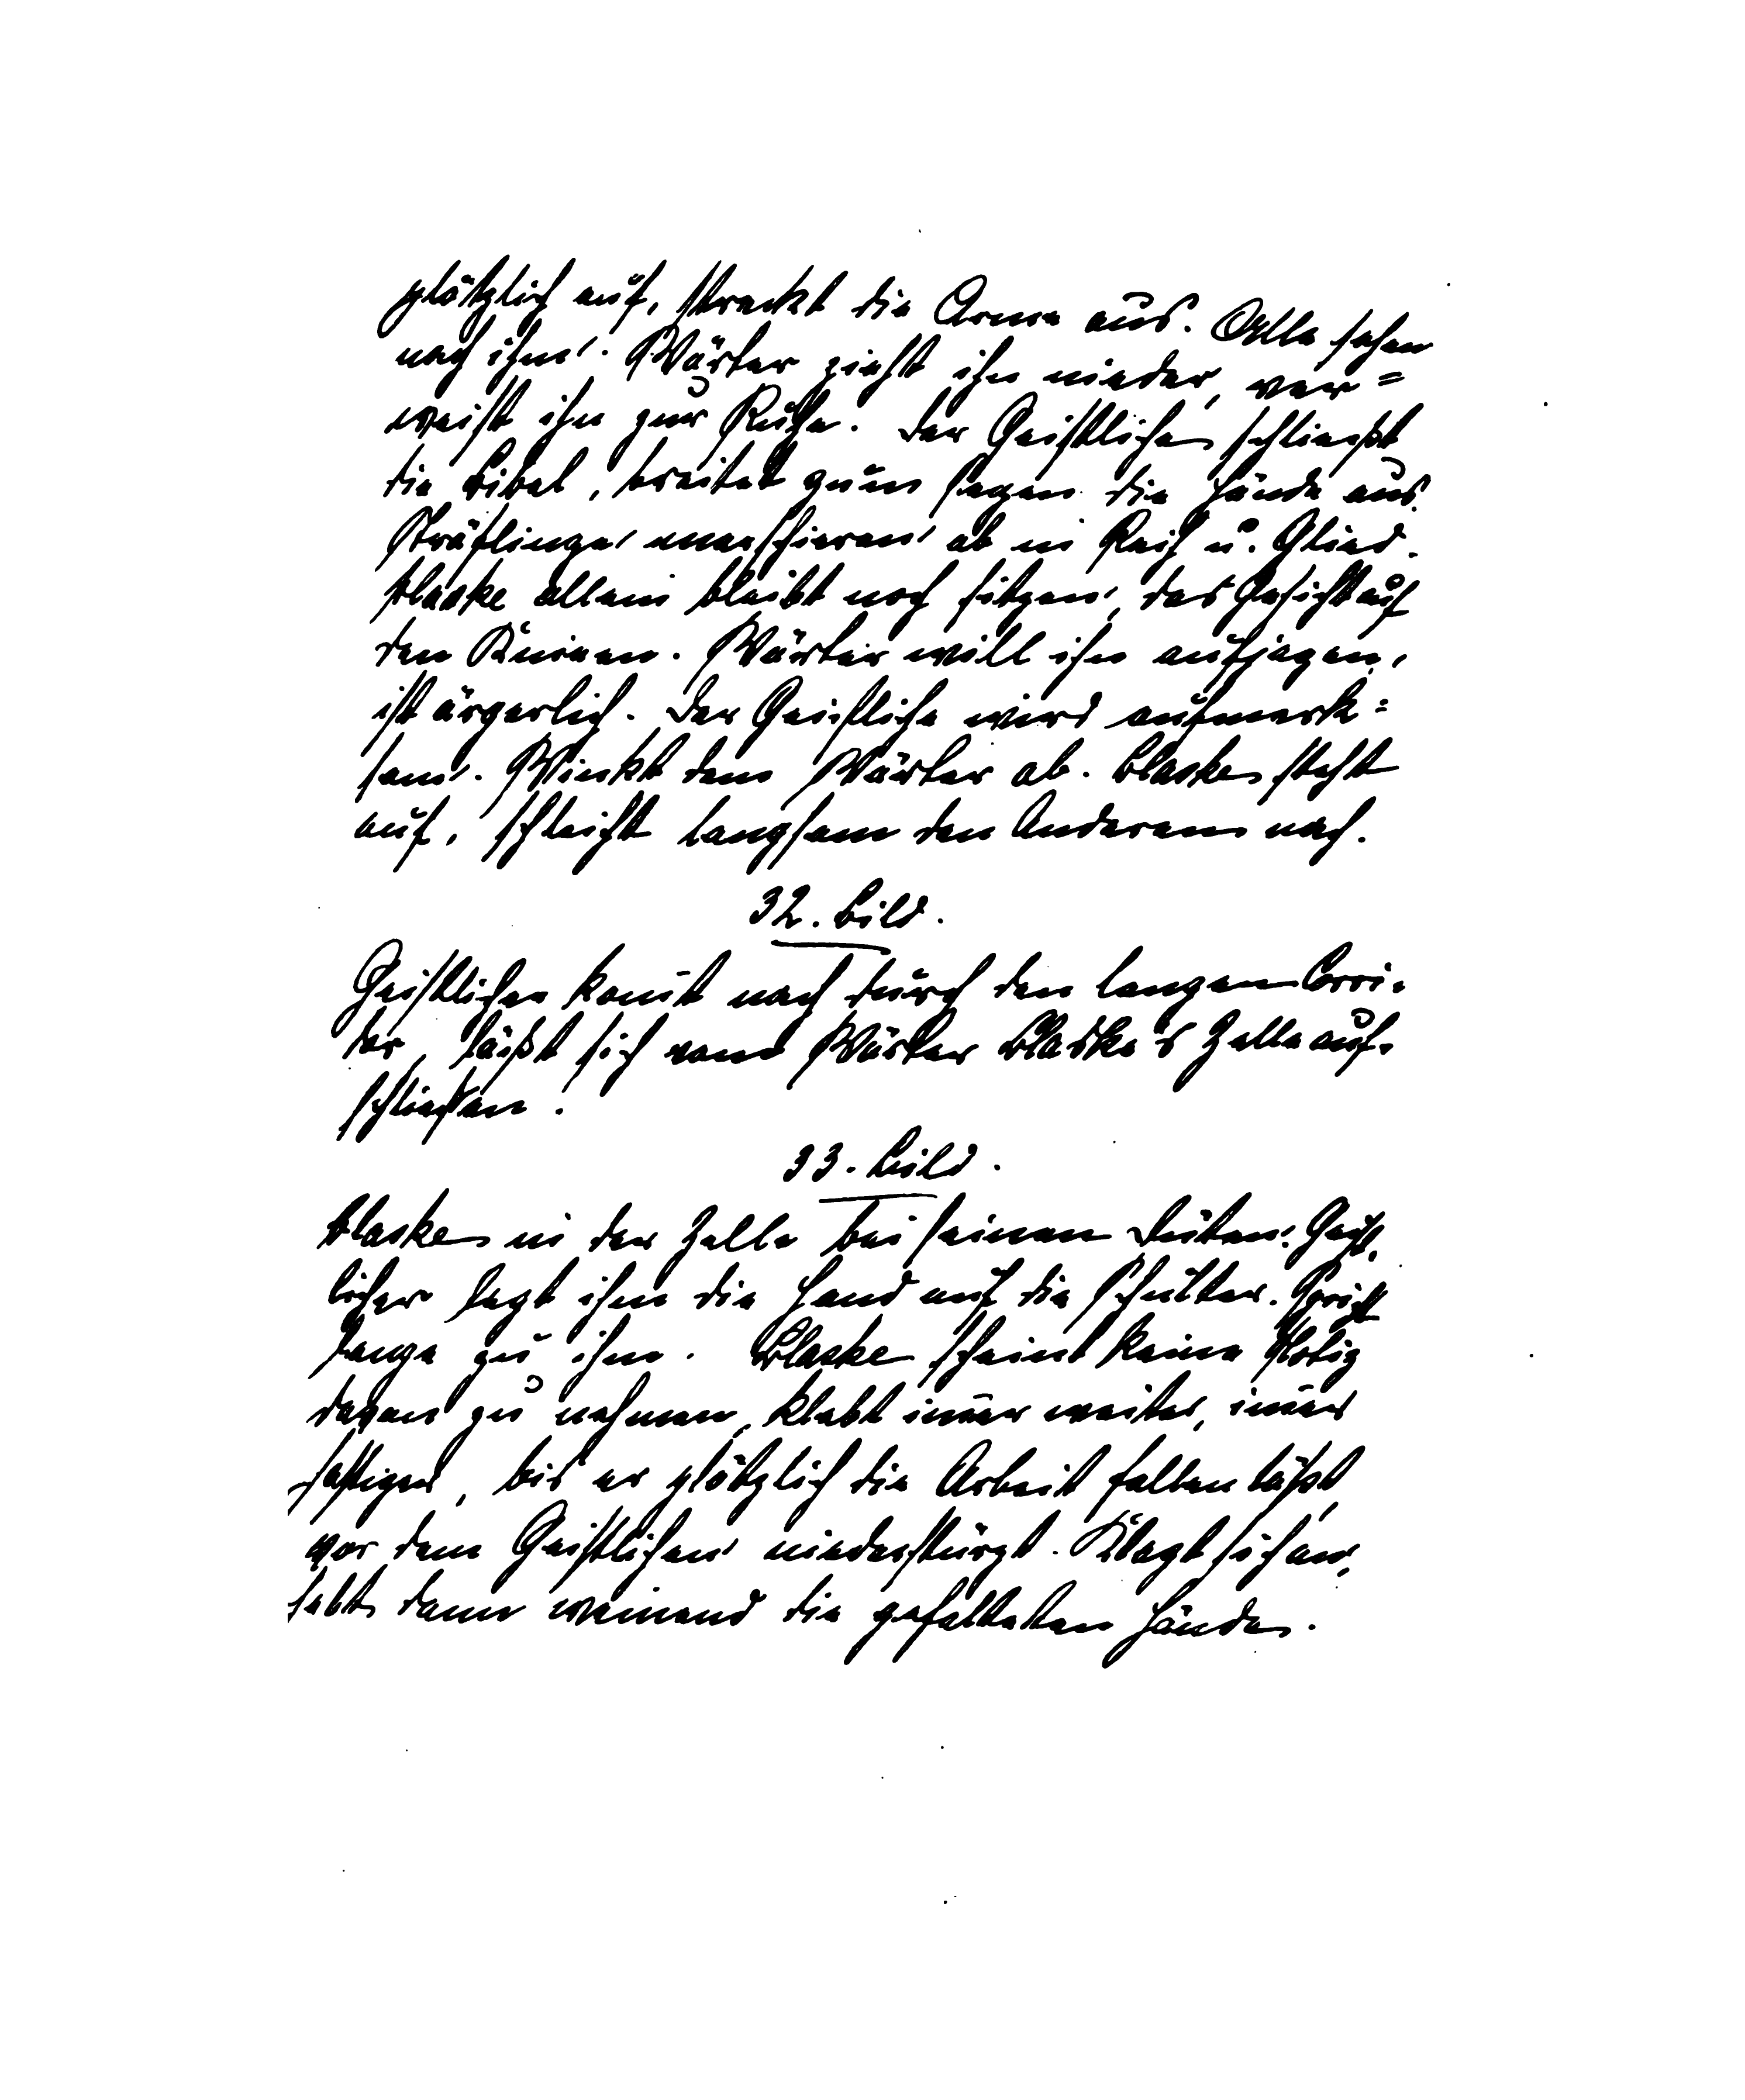 plötzlich auf, streckt die Arme aus. Alle sehen
nach ihm. Wärter zieht ihn nieder, ver=
weist ihn zur Ruhe. Der Geistliche schliesst
die Bibel, breitet zum Segen die Hände aus.
Sträflinge marschieren ab in Reih u. Glied.
Blaske allein bleibt noch sitzen, das Gesicht auf
den Knieen. Wärter will ihn aufjagen,
ist ärgerlich. Der Geistliche wird aufmerk=
sam. Winkt dem Wärter ab. Blaske steht
auf, schleicht langsam den Anderen nach.
32. Bild.
Geistlicher kom̅t nach durch den langen Corri-
dor, läßt sich vom Wärter Blaske's Zelle auf-
schließen.
33. Bild.
Blaske in der Zelle bei seinen Düten. Geist-
licher legt ihm die Hand auf die Schulter. Spricht
lange zu ihm. Blaske scheint keine Notiz
davon zu nehmen, klebt im̅er weiter, im̅er
hastiger, bis er plötzlich die Arbeit fallen läßt,
vor dem Geistlichen niederstürzt. Klagt sich an,
hebt dann weinend die gefalteten Hände.